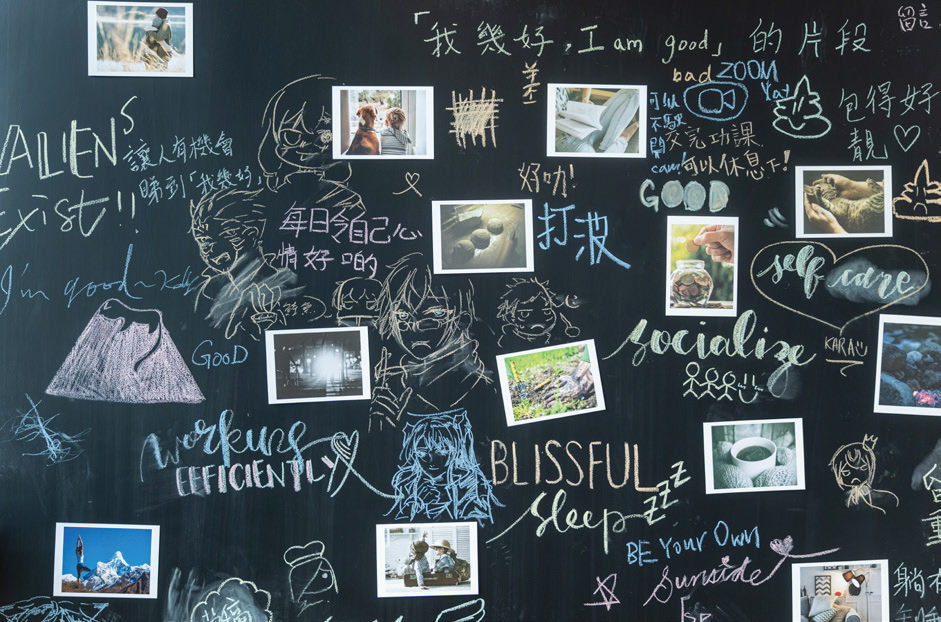 留言
「我幾好, I am good」的片段
bad ZOOM
ALIENS
Exist!!
讓人有機會
睇到「我幾好」
交完功課
可以休息下!
包得好
靚♡
好叻!
GOOD
每日令自己心
情好啲
打波
self care
I'm good~
GOOD
socialize
KARA
working
EFFICIENTLY
BLISSFUL
sleep zzz
BE YOUR OWN
Sunside